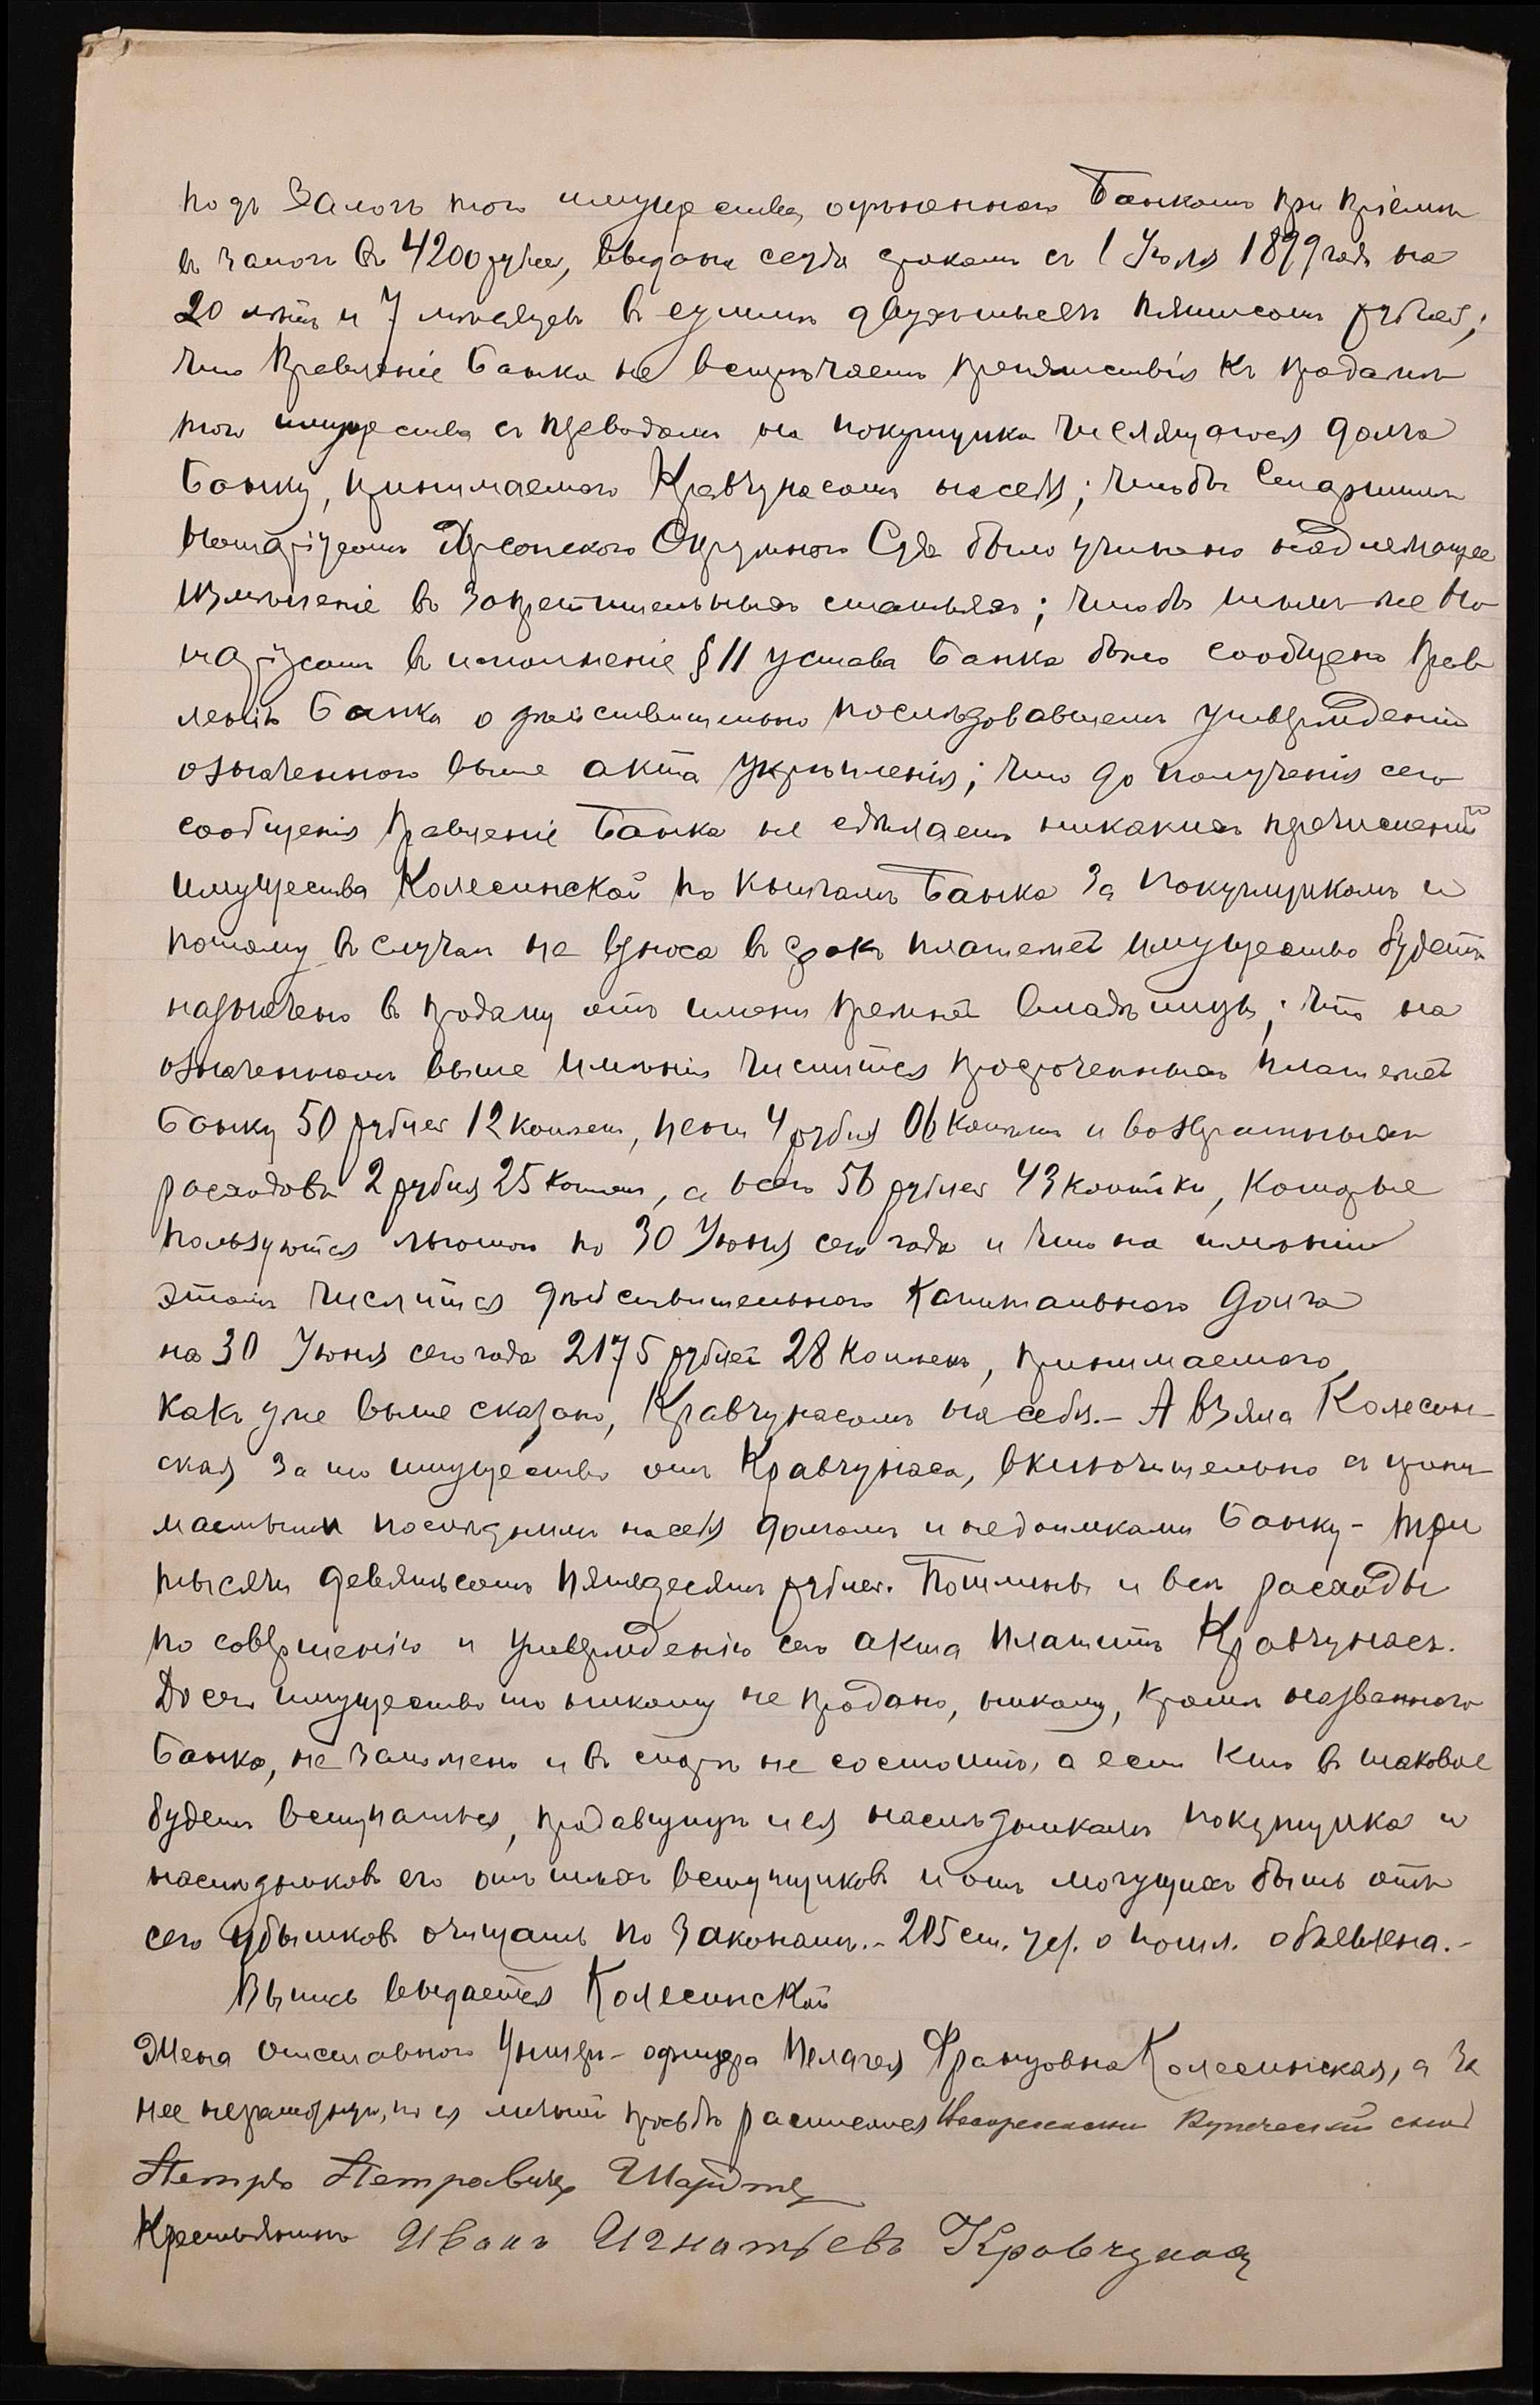 подъ залогъ того имущества, оцѣненнаго Банкомъ при пріемѣ
въ залогъ въ 4200 рублей, выдана ссуда срокомъ съ 1 Іюля 1899 года на
20 лѣтъ и 7 мѣсяцевъ въ суммѣ двухъ тысячъ пятисотъ рублей;
что Правленіе Банка не встрѣчаетъ препятствія къ продажѣ
того имущества съ переводомъ на покупщика числящагося долга
Банку, принимаемаго Кравчунасомъ на себя; чтобы Старшимъ
Нотаріусомъ Херсонскаго Окружнаго Суда было учинено надлежащее
измѣненіе въ запретительныхъ статьяхъ; чтобы тѣмъ-же Но-
таріусомъ въ исполненіе § 11 устава Банка было сообщено Прав-
ленію Банка о дѣйствительно послѣдовавшемъ утвержденіи
означеннаго выше акта укрѣпленія; что до полученія сего
сообщенія Правленіе Банка не сдѣлаетъ никакихъ перечисленій
имущества Колесинской по книгамъ Банка за покупщикомъ и
потому въ случаѣ не взноса въ срокъ платежей имущество будетъ
назначено въ продажу отъ имени прежней владѣлицы; что на
означенномъ выше имѣніи числится просроченныхъ платежей
Банку 50 рублей 12 копѣекъ, пени 4 рубля 06 копѣекъ и возвратныхъ
расходовъ 2 рубля 25 копѣекъ, а всего 56 рублей 43 копѣйки, которые
пользуются льготою по 30 Іюня сего года и что на имѣніи
этомъ числится дѣйствительнаго капитальнаго долга
на 30 Іюня сего года 2175 рублей 28 копѣекъ, принимаемаго,
какъ уже выше сказано, Кравчунасомъ на себя.- А взяла Колесин-
ская за то имущество отъ Кравчунаса, включительно съ прини-
маемыми послѣднимъ на себя долгомъ и недоимками Банку - три
тысячи девятьсотъ пятьдесятъ рублей. Пошлины и всѣ расходы
по совершенію и утвержденію сего акта платитъ Кравчунасъ.
До сего имущество то никому не продано, никому, кромѣ названнаго
Банка, не заложено и въ спорѣ не состоитъ, а если кто въ таковое
будетъ вступаться, продавщицѣ и ея наслѣдникамъ покупщика и
наслѣдниковъ его отъ тѣхъ вступщиковъ и отъ могущихъ быть отъ
сего убытковъ очищать по законамъ.- 205 ст. уст. о пошл. объявлена.-
Выпись выдается Колесинской
Жена отставного Унтеръ-офицера Пелагея Францовна Колесинская, а за
нее неграмотную, по ея личной просьбѣ расписался Купеческій сынъ
Петръ Петровичъ
Крестьянинъ Иванъ Игнатьевъ Кравчунасъ